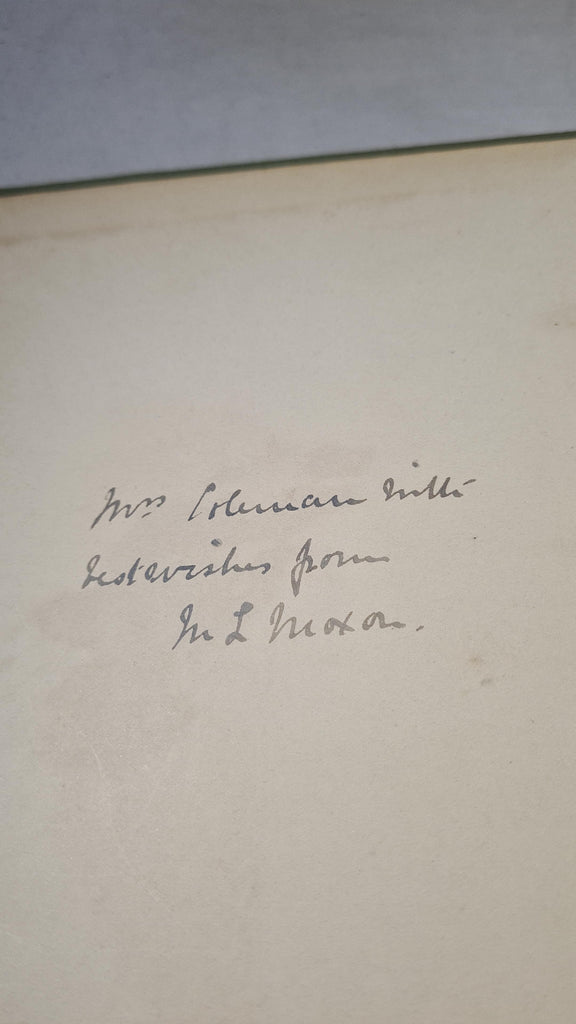 Mrs Coleman with
best wishes from
M L Moxon.